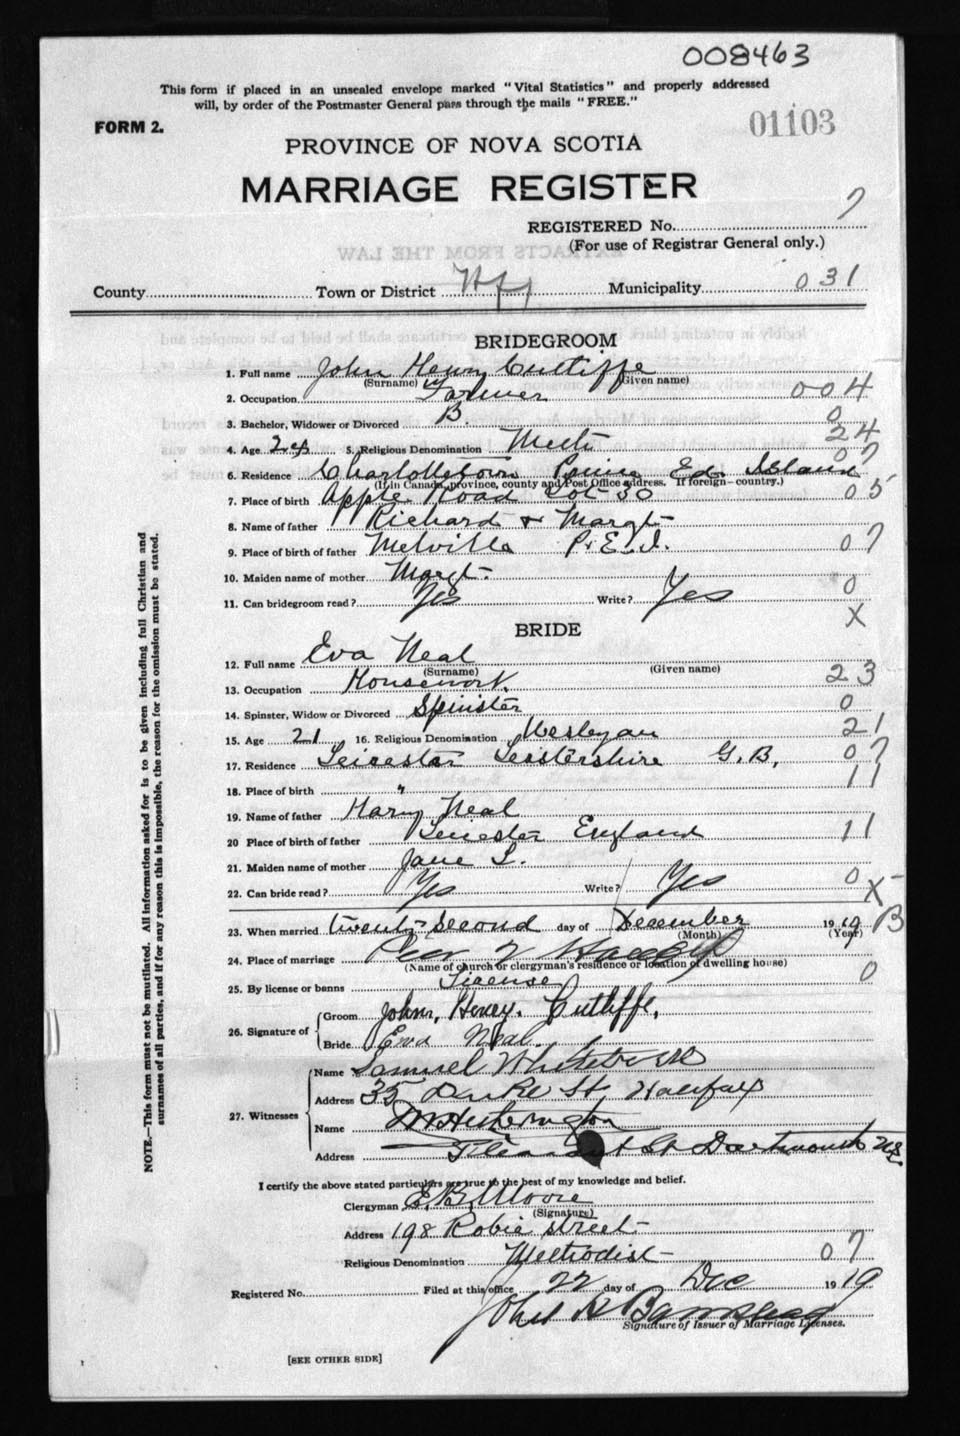 008463
This form if placed in an unsealed envelope marked "Vital Statistics" and properly addressed
will, by order of the Postmaster General pass through the mails "FREE."
FORM 2.
01103
PROVINCE OF NOVA SCOTIA
MARRIAGE REGISTER
REGISTERED No. 7
(For use of Registrar General only.)
County Town or District Hfx Municipality 031
BRIDEGROOM
1. Full name John Henry Cutliffe
(Surname) (Given name)
2. Occupation Farmer 004
3. Bachelor, Widower or Divorced B 0
4. Age 24 5. Religious Denomination Meth 24
07
6. Residence Charlottetown Prince Ed. Island
(If in Canada, province, county and Post Office address. If foreign—country.)
7. Place of birth Apple Road Lot 30 05
8. Name of father Richard & Margt
9. Place of birth of father Melville P.E.I. 07
10. Maiden name of mother Margt.
11. Can bridegroom read? Yes Write? Yes 0
X
BRIDE
12. Full name Eva Neal
(Surname) (Given name)
13. Occupation Housework 23
14. Spinster, Widow or Divorced Spinster 0
15. Age 21 16. Religious Denomination Wesleyan 21
17. Residence Leicester Leistershire G.B. 07
18. Place of birth " 11
19. Name of father Harry Neal
20 Place of birth of father Leicester England 11
21. Maiden name of mother Jane L.
22. Can bride read? Yes Write? Yes 0
X
23. When married twenty-second day of December 1919 B
(Month) (Year)
24. Place of marriage
(Name of church or clergyman's residence or location of dwelling house)
25. By license or banns License 0
26. Signature of
Groom John, Henry. Cutliffe,
Bride Eva Neal.
27. Witnesses
Name Samuel
Address 35 Duke St Halifax
Name
Address Pleasant St Dartmouth NS.
I certify the above stated particulars are true to the best of my knowledge and belief.
Clergyman E. B. Moore
(Signature)
Address 198 Robie street
Religious Denomination Methodist 07
Registered No. Filed at this office 22 day of Dec 1919
John
Signature of Issuer of Marriage Licenses.
[SEE OTHER SIDE]
NOTE.—This form must not be mutilated. All information asked for is to be given including full Christian and
surnames of all parties, and if for any reason this is impossible, the reason for the omission must be stated.